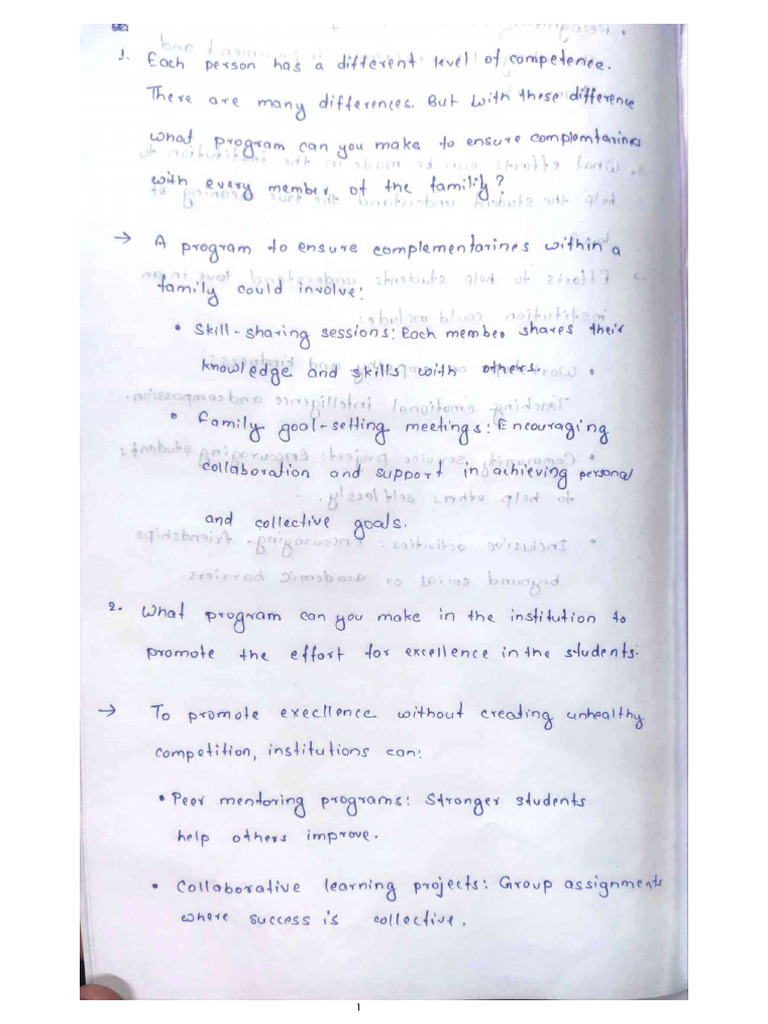 1. Each person has a different level of competence.
There are many differences. But with these difference
what program can you make to ensure complemtarines
with every member of the familiy?
→ A program to ensure complementarines within a
family could involve:
• Skill-sharing sessions: Each member shares their
knowledge and skills with others.
• Family goal-setting meetings: Encouraging
collaboration and support in achieving personal
and collective goals.
2. What program can you make in the institution to
promote the effort for excellence in the students.
→ To promote execllence without creating unhealthy
competition, institutions can:
• Peer mentoring programs: Stronger students
help others improve.
• Collaborative learning projects: Group assignments
where success is collective.
1